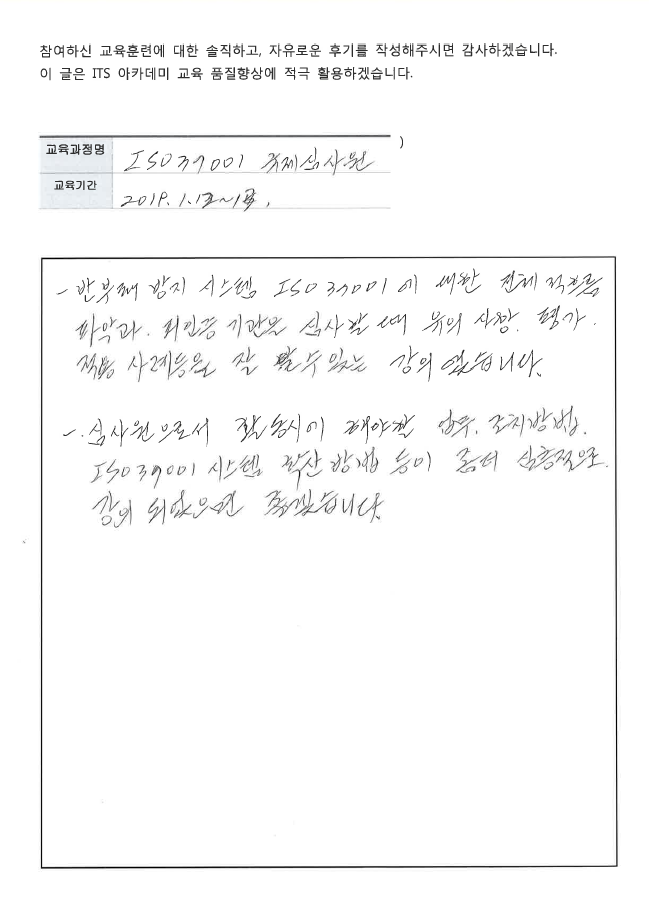 참여하신 교육훈련에 대한 솔직하고, 자유로운 후기를 작성해주시면 감사하겠습니다.
이 글은 ITS 아카데미 교육 품질향상에 적극 활용하겠습니다.
교육과정명 ISO 37001 국제심사원 )
교육기간 2019. 1.
- 반부패 방지 시스템 ISO 37001에 대한 전체적 흐름
파악과. 피인증 기관을 심사할 때 유의 사항. 평가.
적용 사례등을 잘 알 수 있는 강의 였습니다.
-. 심사원으로서 활동시에 해야할 업무. 조치방법.
ISO 37001 시스템 확산 방법 등이 좀더 심층적으로
강의 되었으면 좋겠습니다.